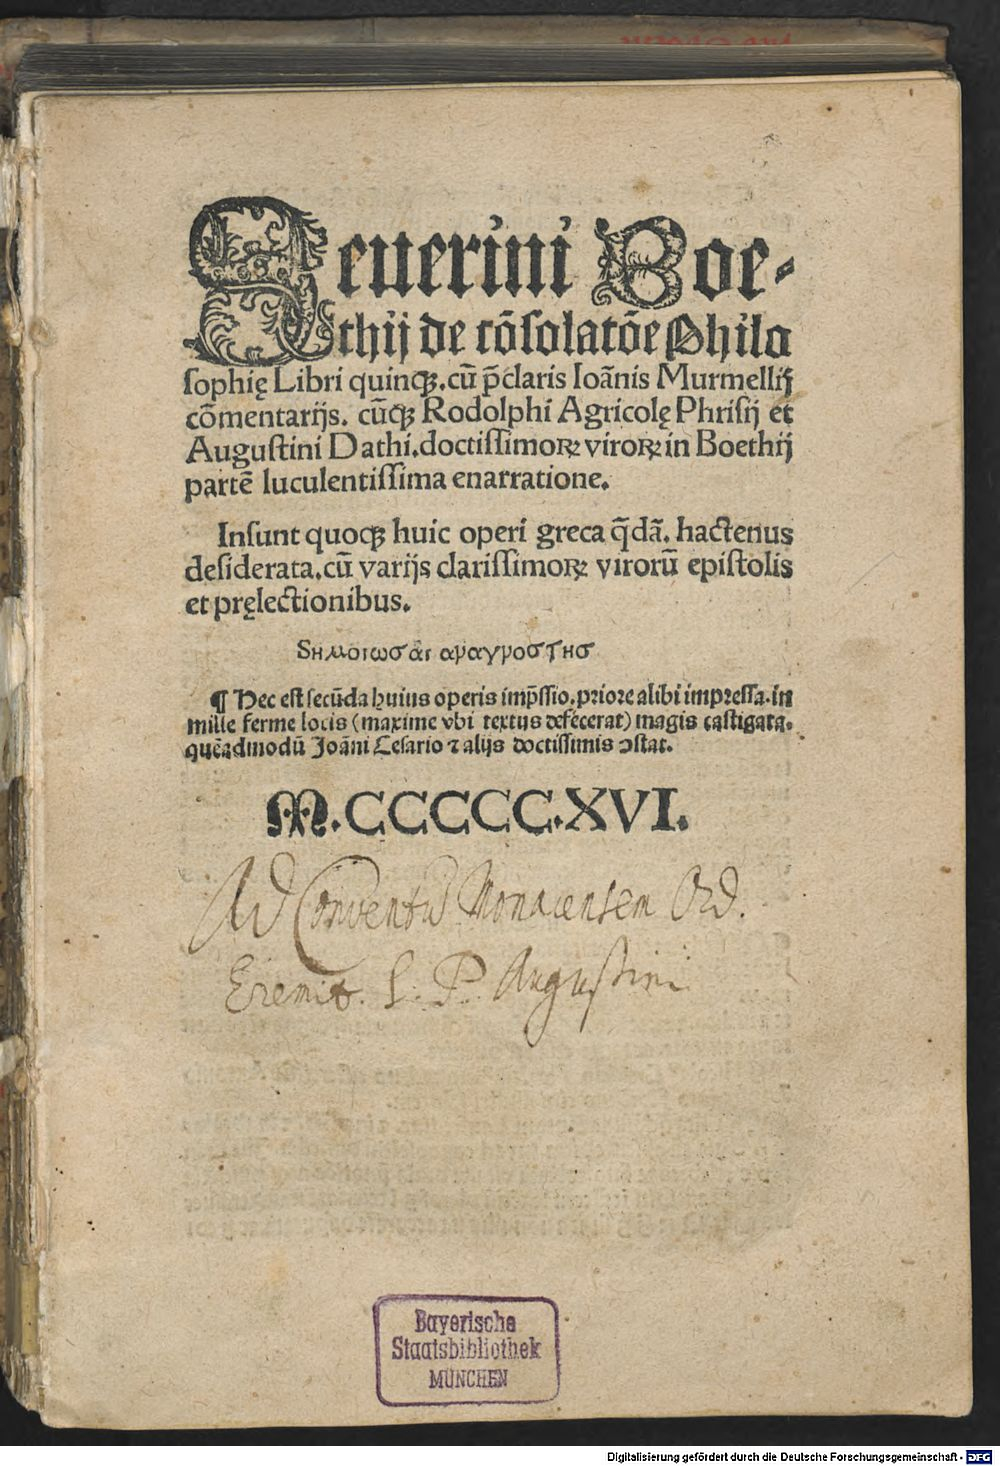 Seuerini Boe-
thij de cõsolatõe Phila
sophię Libri quinqꝫ. cũ p̃claris Ioãnis Murmellij
cõmentarijs. cũqꝫ Rodolphi Agricolę Phrisij et
Augustini Dathi. doctissimoꝝ viroꝝ in Boethij
partẽ luculentissima enarratione.
Insunt quoqꝫ huic operi greca q̃dã. hactenus
desiderata. cũ varijs clarissimoꝝ virorũ epistolis
et pręlectionibus.
¶ Hec est secũda huius operis imp̃ssio. priore alibi impressa. in
mille ferme locis (maxime vbi textus defecerat) magis castigata.
quẽadmodũ Joãni Cesario ⁊ alijs doctissimis ↄstat.
M.CCCCC.XVI.
Ad Conventũ Monacensem Ord.
Eremit. S. P. Augustini
Bayerische
Staatsbibliothek
MÜNCHEN
Digitalisierung gefördert durch die Deutsche Forschungsgemeinschaft - DFG